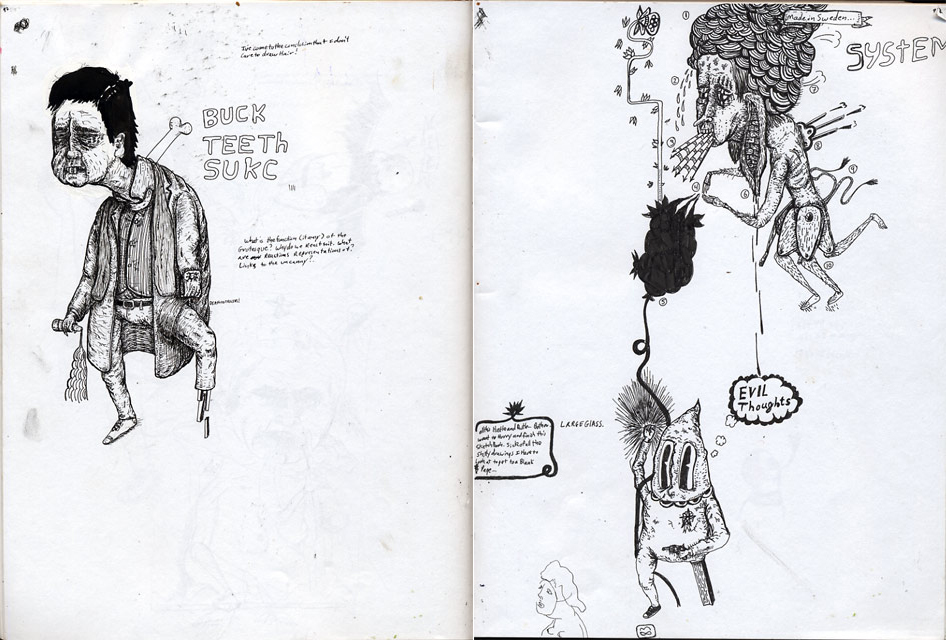 I've come to the conclusion that I don't
care to draw Hair!
BUCK
TEETH
SUKC
What is the function (literary) of the
Grotesque? Why do we React to it. What
are Reactions Representations of?
Links to the uncanny?..
Made in Sweden...
SYSTEM
1
2
3
4
5
6
7
8
9
10
EVIL
Thoughts
LARGE GLASS.
want to Hurry and finish this
Sketchbook. Sick of all the
Shitty drawings I Have to
look at to get to a Blank
Page...